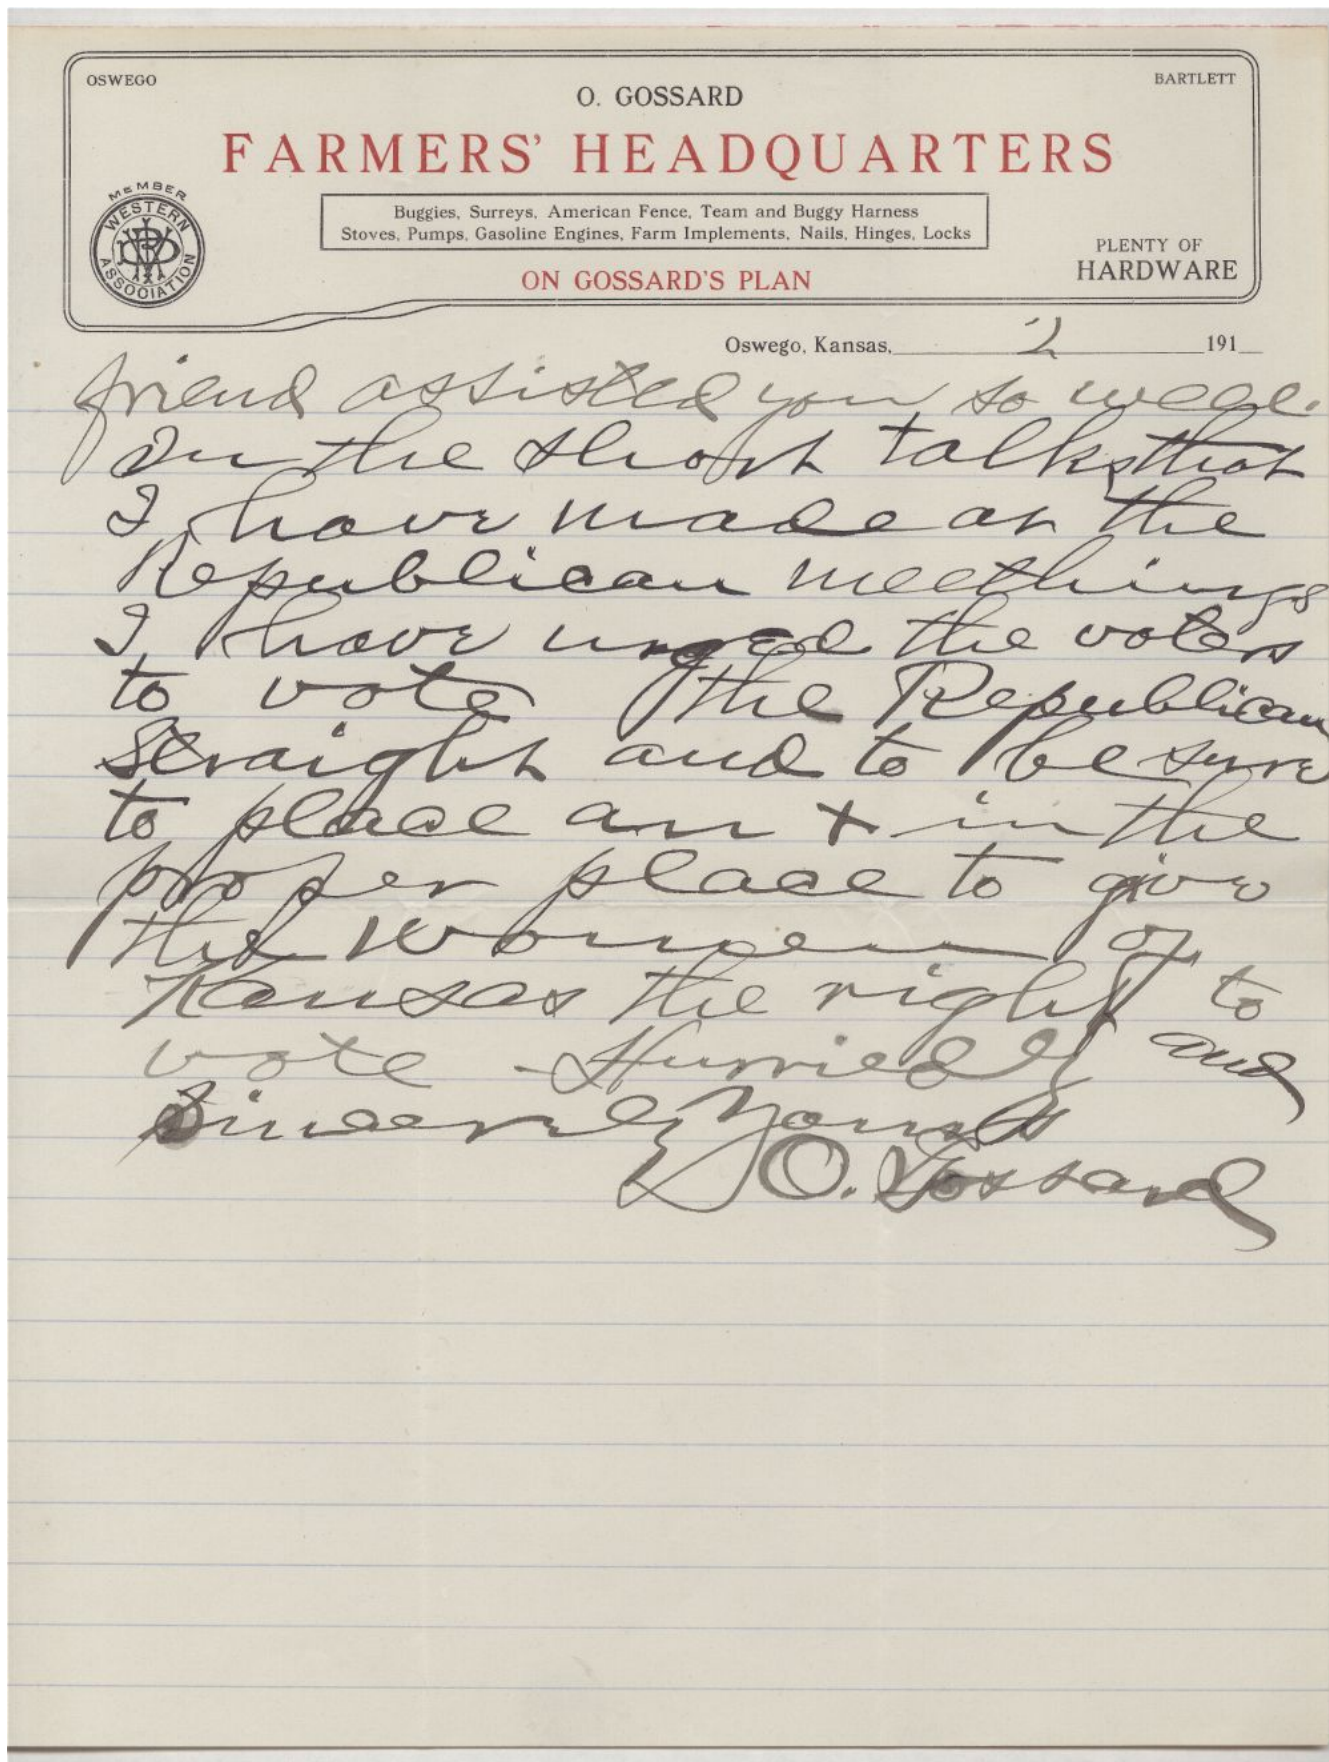 OSWEGO
BARTLETT
O. GOSSARD
FARMERS' HEADQUARTERS
MEMBER
WESTERN
ASSOCIATION
Buggies, Surreys, American Fence, Team and Buggy Harness
Stoves, Pumps, Gasoline Engines, Farm Implements, Nails, Hinges, Locks
PLENTY OF
HARDWARE
ON GOSSARD'S PLAN
Oswego, Kansas, 2 191
friend assisted you so well.
In the short talks that
I have made at the
Republican meethings
I have urged the voters
to vote the Republican
Straight and to be sure
to place an + in the
proper place to give
the Women of
Kansas the right to
vote - Hurriedly and
Sincerely Yours
O. Gossard